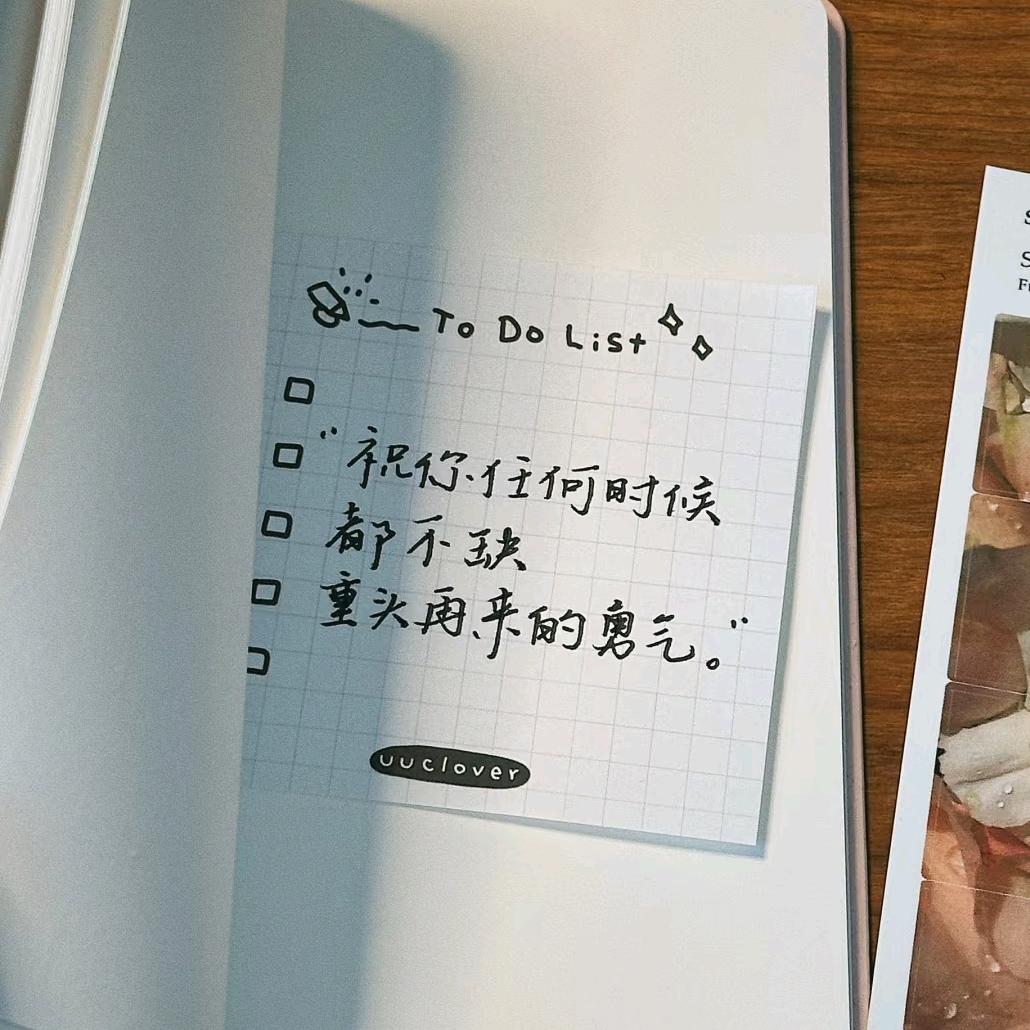 To Do List
“祝你任何时候
都不缺
重头再来的勇气。”
uuclover
S
S